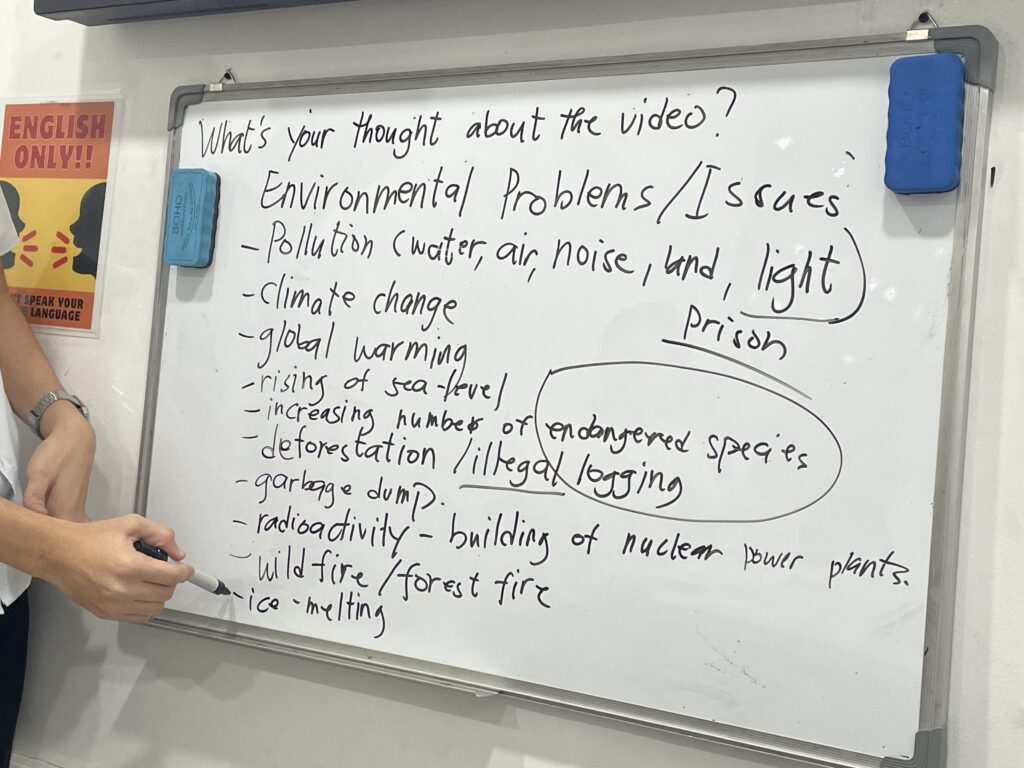 What's your thought about the video?
Environmental Problems/Issues
- Pollution (water, air, noise, land, light)
prison
- climate change
- global warming
- rising of sea-level
- increasing number of endangered species
- deforestation /illegal logging
- garbage dump.
- radioactivity - building of nuclear power plants.
- wild fire/forest fire
- ice-melting
ENGLISH
ONLY!!
SPEAK YOUR
LANGUAGE
BOHO
BOHO